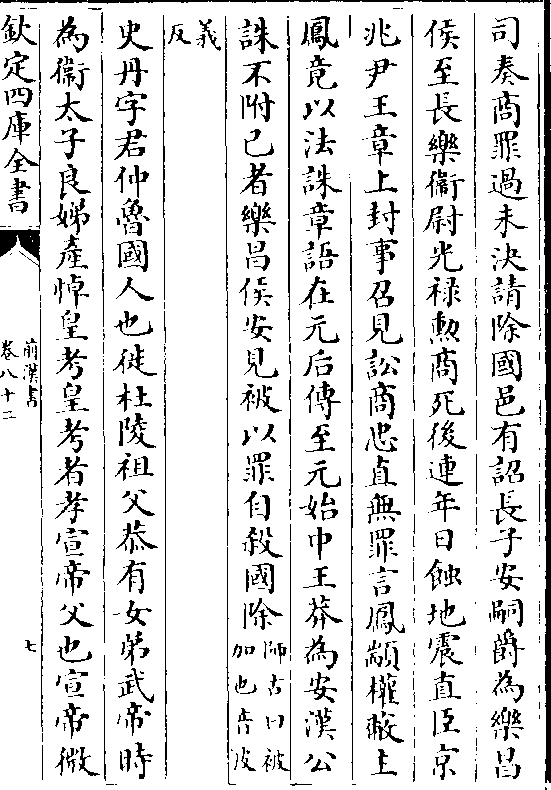 司奏商罪過未決請除國邑有詔長子安嗣爵為樂昌
侯至長樂衞尉光禄勲商死後連年日蝕地震直臣京
兆尹王章上封事召見訟商忠直無罪言鳳顓權蔽主
鳳竟以法誅章語在元后傳至元始中王莽為安漢公
誅不附已者樂昌侯安見被以罪自殺國除師古曰被加也音皮
義反
史丹字君仲魯國人也徙杜陵祖父恭有女弟武帝時
為衞太子良娣產悼皇考皇考者孝宣帝父也宣帝微
欽定四庫全書
前漢書
卷八十二
七